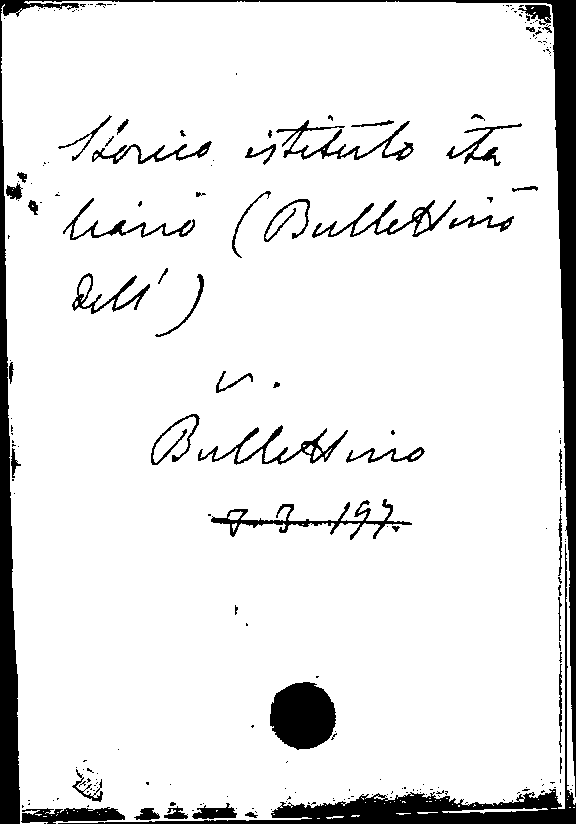 Storico istituto ita
liano (Bullettino
dell')
v.
Bullettino
7. 3. 197.